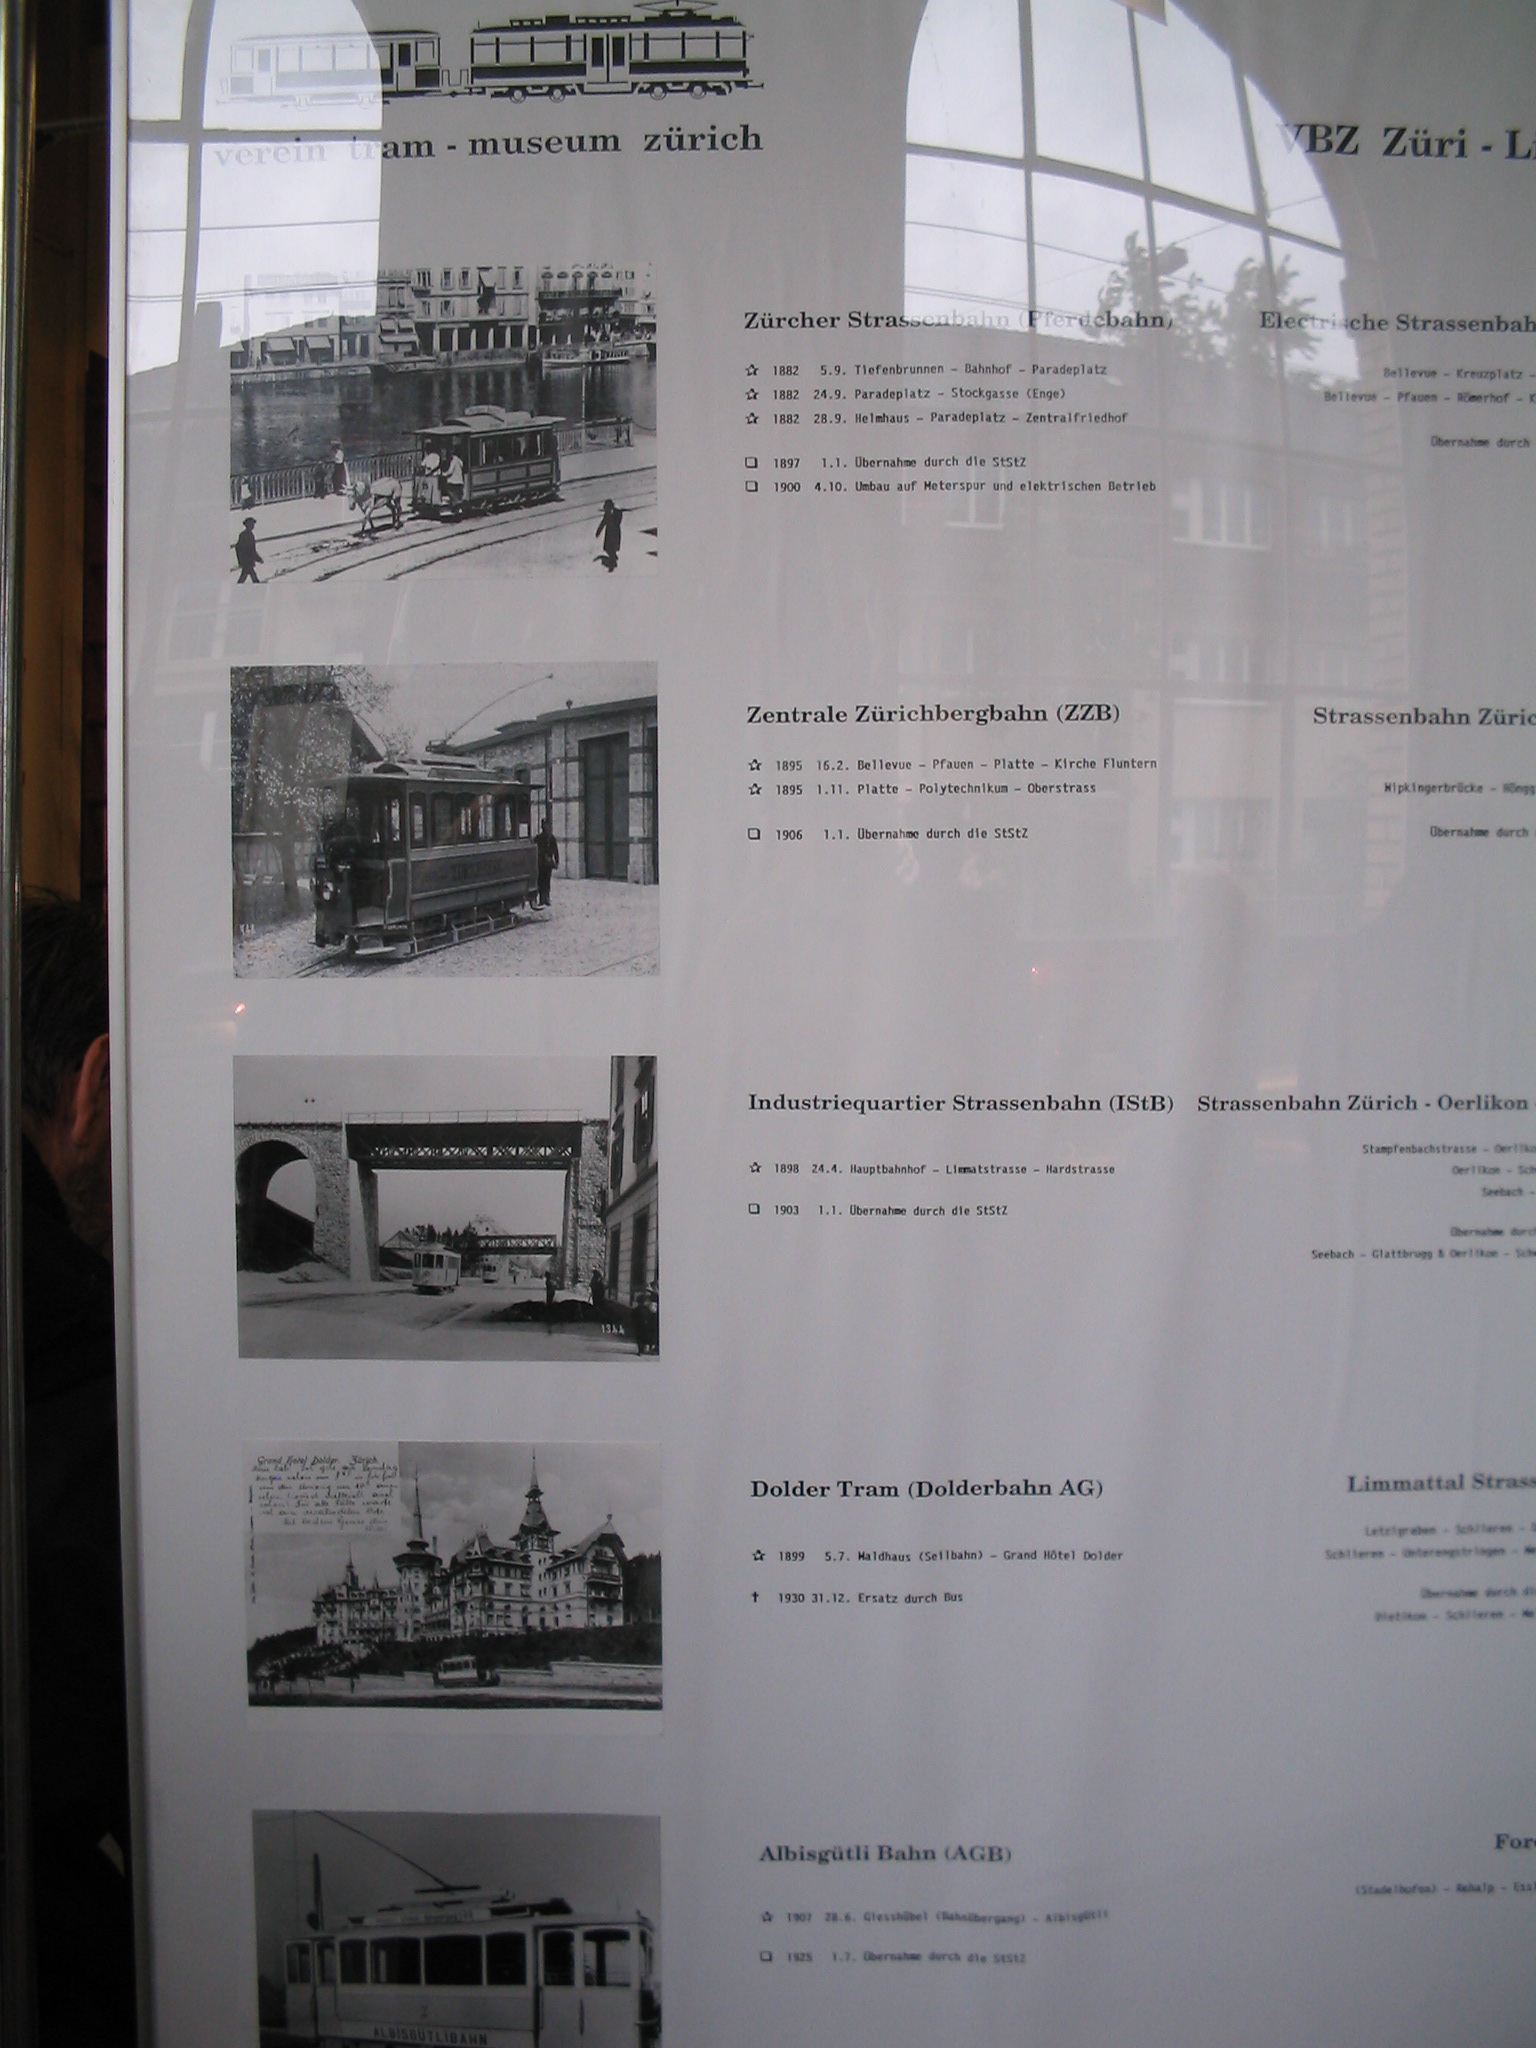 verein tram - museum zürich
VBZ Züri -
Zürcher Strassenbahn (Pferdebahn)
☆ 1882 5.9. Tiefenbrunnen - Bahnhof - Paradeplatz
☆ 1882 24.9. Paradeplatz - Stockgasse (Enge)
☆ 1882 28.9. Helmhaus - Paradeplatz - Zentralfriedhof
❏ 1897 1.1. Übernahme durch die StStZ
❏ 1900 4.10. Umbau auf Meterspur und elektrischen Betrieb
Electrische Strassenbah
Bellevue - Kreuzplatz -
Bellevue - Pfauen - Römerhof - K
Übernahme durch
Zentrale Zürichbergbahn (ZZB)
☆ 1895 16.2. Bellevue - Pfauen - Platte - Kirche Fluntern
☆ 1895 1.11. Platte - Polytechnikum - Oberstrass
❏ 1906 1.1. Übernahme durch die StStZ
Strassenbahn Züric
Wipkingerbrücke - Höngg
Übernahme durch
Industriequartier Strassenbahn (IStB)
☆ 1898 24.4. Hauptbahnhof - Limmatstrasse - Hardstrasse
❏ 1903 1.1. Übernahme durch die StStZ
1344
Strassenbahn Zürich - Oerlikon
Stampfenbachstrasse - Oerliko
Oerlikon - Sch
Seebach -
Übernahme durc
Seebach - Glattbrugg & Oerlikon - Schw
Grand Hotel Dolder Zürich
Dolder Tram (Dolderbahn AG)
☆ 1899 5.7. Waldhaus (Seilbahn) - Grand Hôtel Dolder
✝ 1930 31.12. Ersatz durch Bus
Limmattal Strass
Letzigraben - Schlieren -
Schlieren - Unterengstringen - We
Übernahme durch di
Dietikon - Schlieren - We
Albisgütli Bahn (AGB)
☆ 1907 28.6. Giesshübel (Bahnübergang) - Albisgütli
❏ 1925 1.7. Übernahme durch die StStZ
ALBISGÜTLIBAHN
For
(Stadelhofen) - Rehalp - Essl